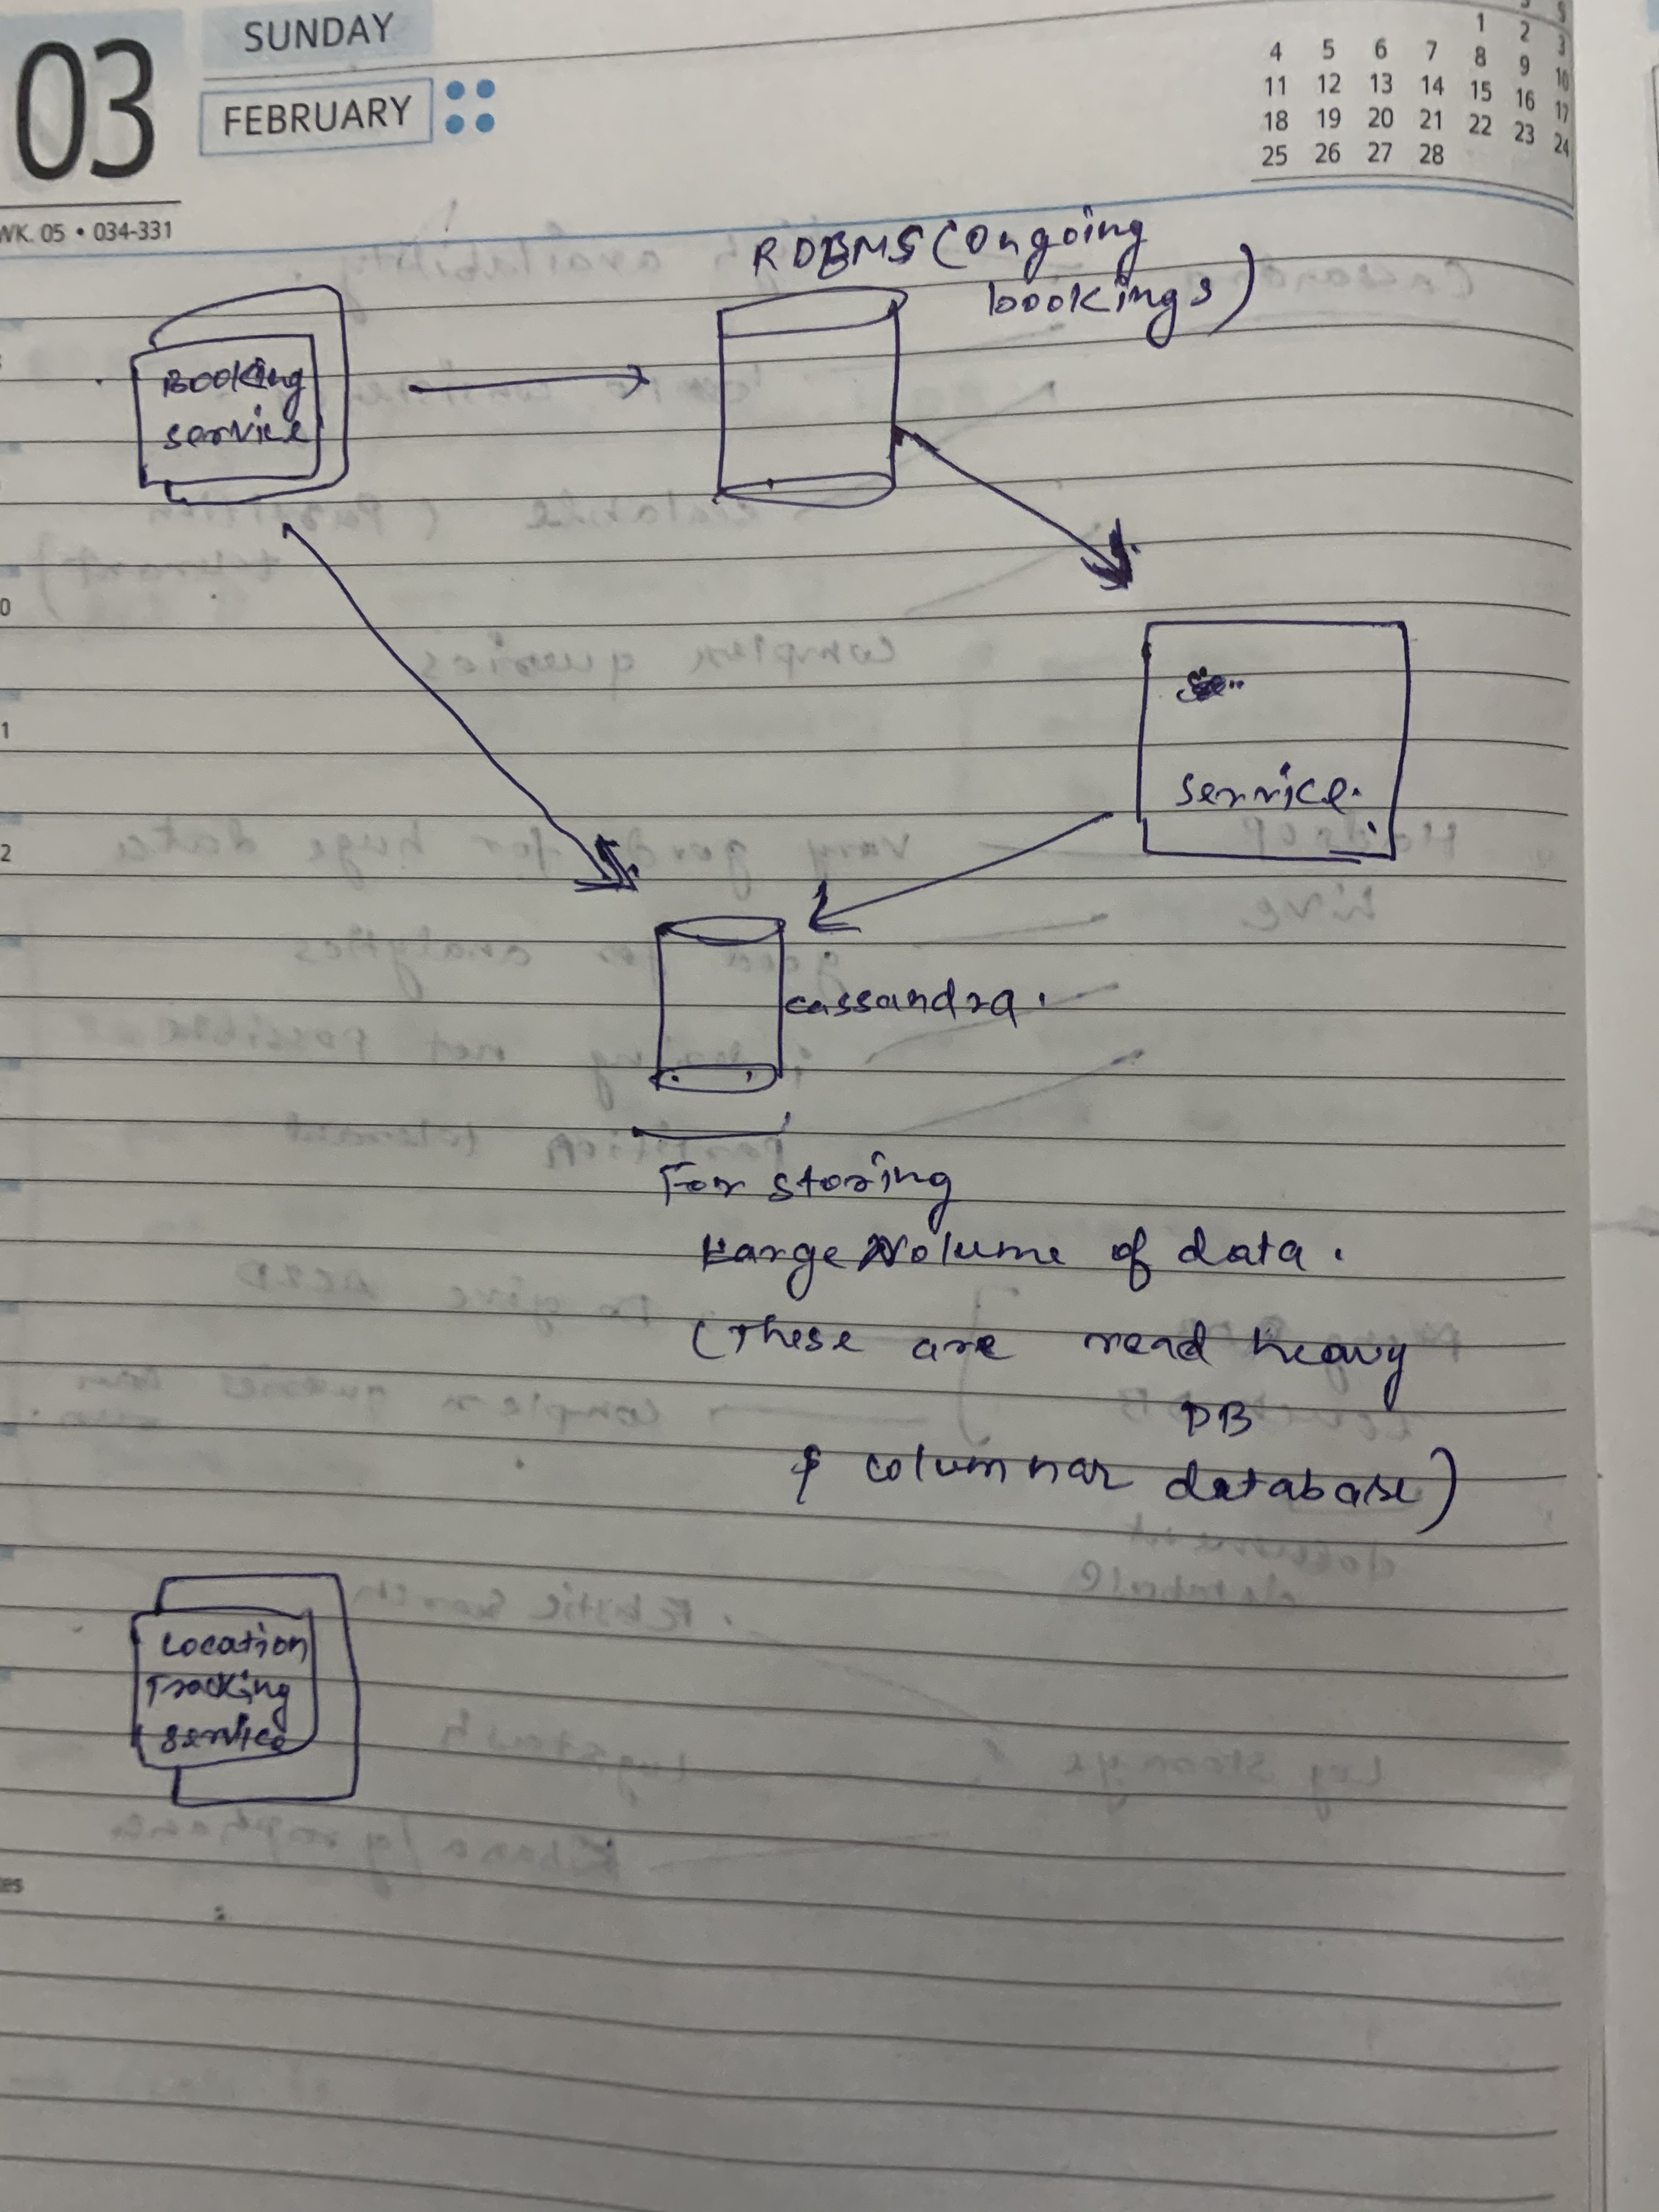 03
SUNDAY
FEBRUARY
WK. 05 • 034-331
1 2 3
4 5 6 7 8 9 10
11 12 13 14 15 16 17
18 19 20 21 22 23 24
25 26 27 28
RDBMS (ongoing
bookings)
Booking
service
service.
cassandra.
For storing
Large volume of data.
(These are read heavy
DB
& columnar database)
Location
Tracking
service